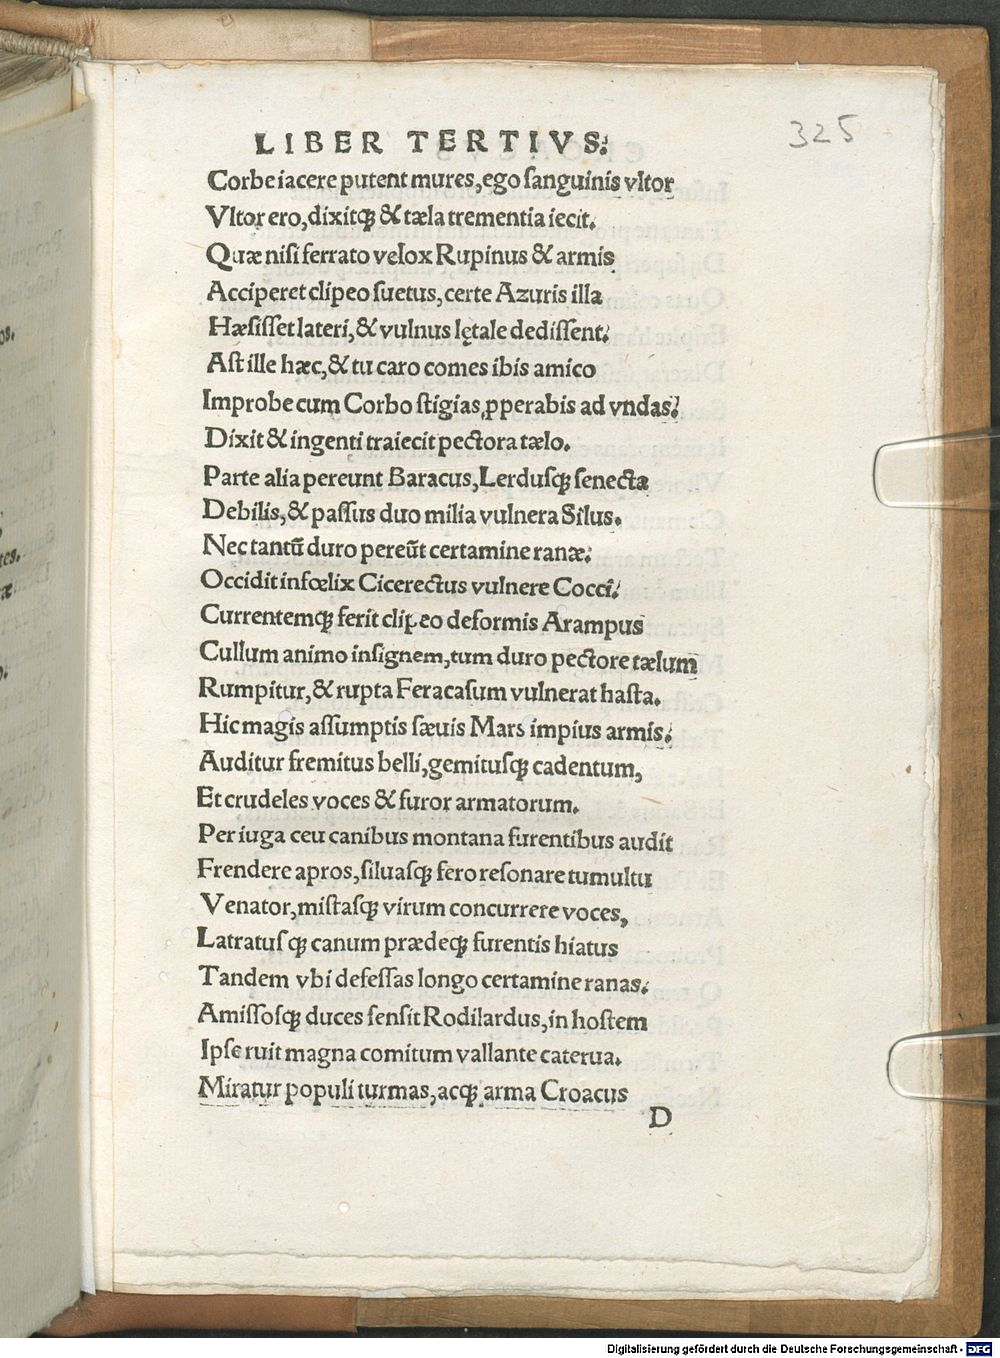 325
LIBER TERTIVS.
Corbe iacere putent mures, ego ſanguinis vltor
Vltor ero, dixitqꝫ & tæla trementia iecit.
Quæ niſi ferrato velox Rupinus & armis
Acciperet clipeo ſuetus, certe Azuris illa
Hæſiſſet lateri, & vulnus lętale dediſſent.
Aſt ille hæc, & tu caro comes ibis amico
Improbe cum Corbo ſtigias ꝓperabis ad vndas.
Dixit & ingenti traiecit pectora tælo.
Parte alia pereunt Baracus, Lerduſqꝫ ſenecta
Debilis, & paſſus duo milia vulnera Silus.
Nec tantū duro pereūt certamine ranæ.
Occidit infœlix Cicerectus vulnere Coccī.
Currentemqꝫ ferit clipeo deformis Arampus
Cullum animo inſignem, tum duro pectore tælum
Rumpitur, & rupta Feracaſum vulnerat haſta.
Hic magis aſſumptis ſæuis Mars impius armis.
Auditur fremitus belli, gemituſqꝫ cadentum,
Et crudeles voces & furor armatorum.
Per iuga ceu canibus montana furentibus audit
Frendere apros, ſiluaſqꝫ fero reſonare tumultu
Venator, miſtaſqꝫ virum concurrere voces,
Latratuſqꝫ canum prædeqꝫ furentis hiatus
Tandem vbi defeſſas longo certamine ranas.
Amiſſoſqꝫ duces ſenſit Rodilardus, in hoſtem
Ipſe ruit magna comitum vallante caterua.
Miratur populi turmas, acqꝫ arma Croacus
D
os.
tes.
Digitalisierung gefördert durch die Deutsche Forschungsgemeinschaft - DFG